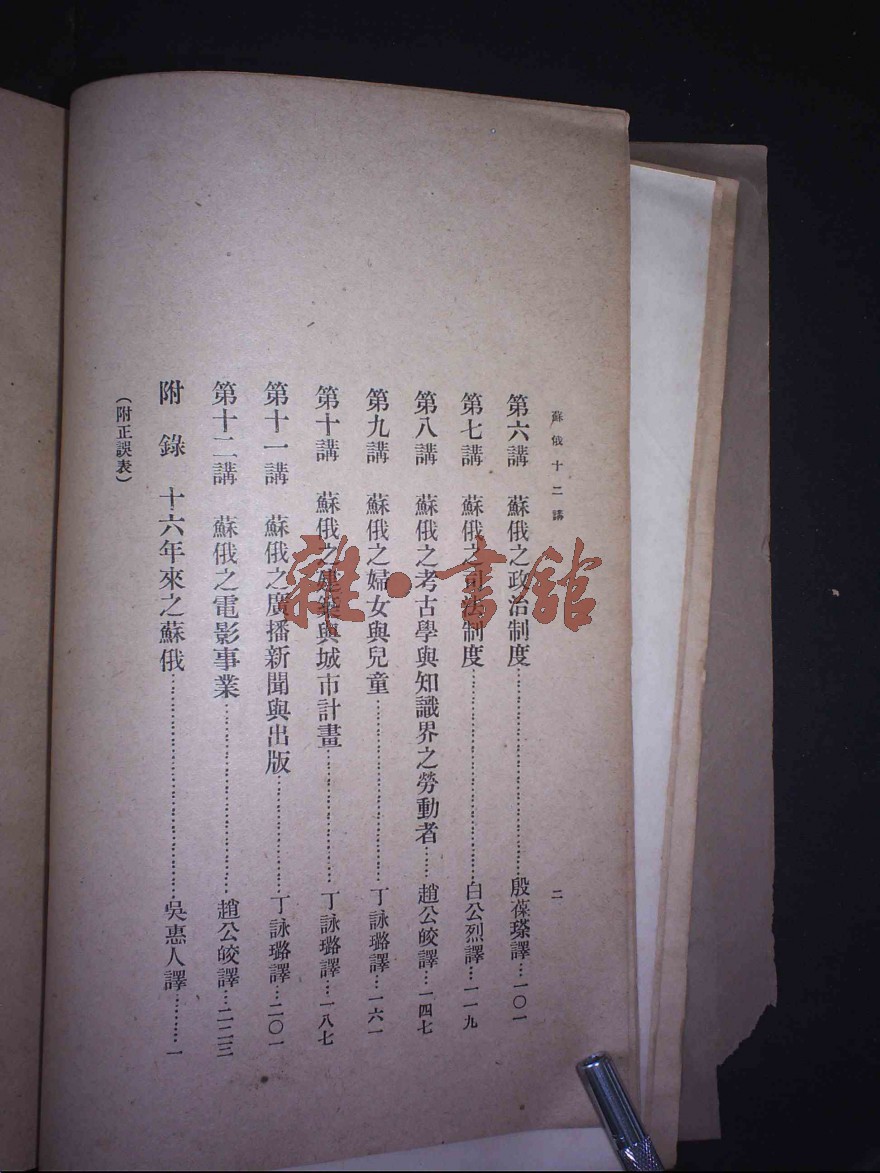 蘇俄十二講
二
第六講 蘇俄之政治制度……殷葆瑹譯…一〇一
第七講 蘇俄之司法制度……白公烈譯…一一九
第八講 蘇俄之考古學與知識界之勞動者……趙公皎譯…一四七
第九講 蘇俄之婦女與兒童……丁詠璐譯…一六一
第十講 蘇俄之建築與城市計畫……丁詠璐譯…一八七
第十一講 蘇俄之廣播新聞與出版……丁詠璐譯…二〇一
第十二講 蘇俄之電影事業……趙公皎譯…二二三
附錄 十六年來之蘇俄……吳惠人譯……一
（附正誤表）
雜·書館